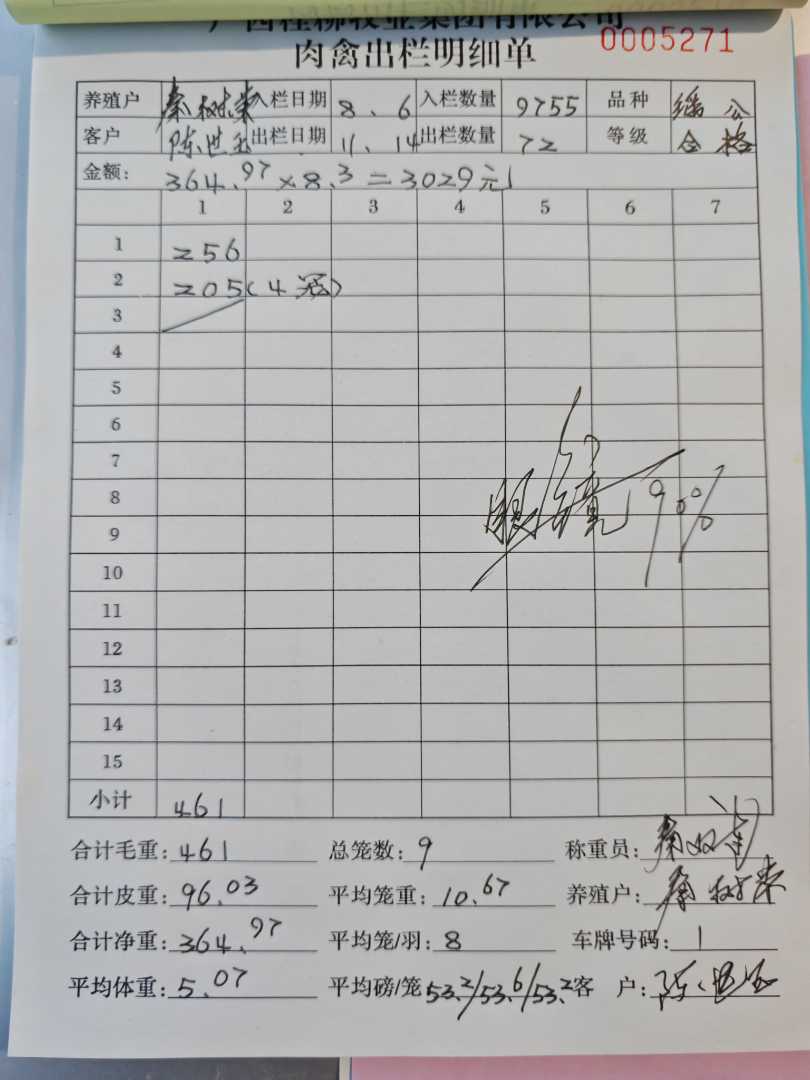 广西桂柳牧业集团有限公司
肉禽出栏明细单 0005271
养殖户 秦树荣 入栏日期 8.6 入栏数量 9755 品种 公
客户 陈世玉 出栏日期 11.14 出栏数量 72 等级 合格
金额: 364.97×8.3=3029元
1 2 3 4 5 6 7
1 256
2 205(4冠)
3
4
5
6
7
8 眼镜90%
9
10
11
12
13
14
15
小计 461
合计毛重: 461 总笼数: 9 称重员: 秦
合计皮重: 96.03 平均笼重: 10.67 养殖户: 秦树荣
合计净重: 364.97 平均笼/羽: 8 车牌号码: 1
平均体重: 5.07 平均磅/笼 53.2/53.6/53.2 客 户: 陈